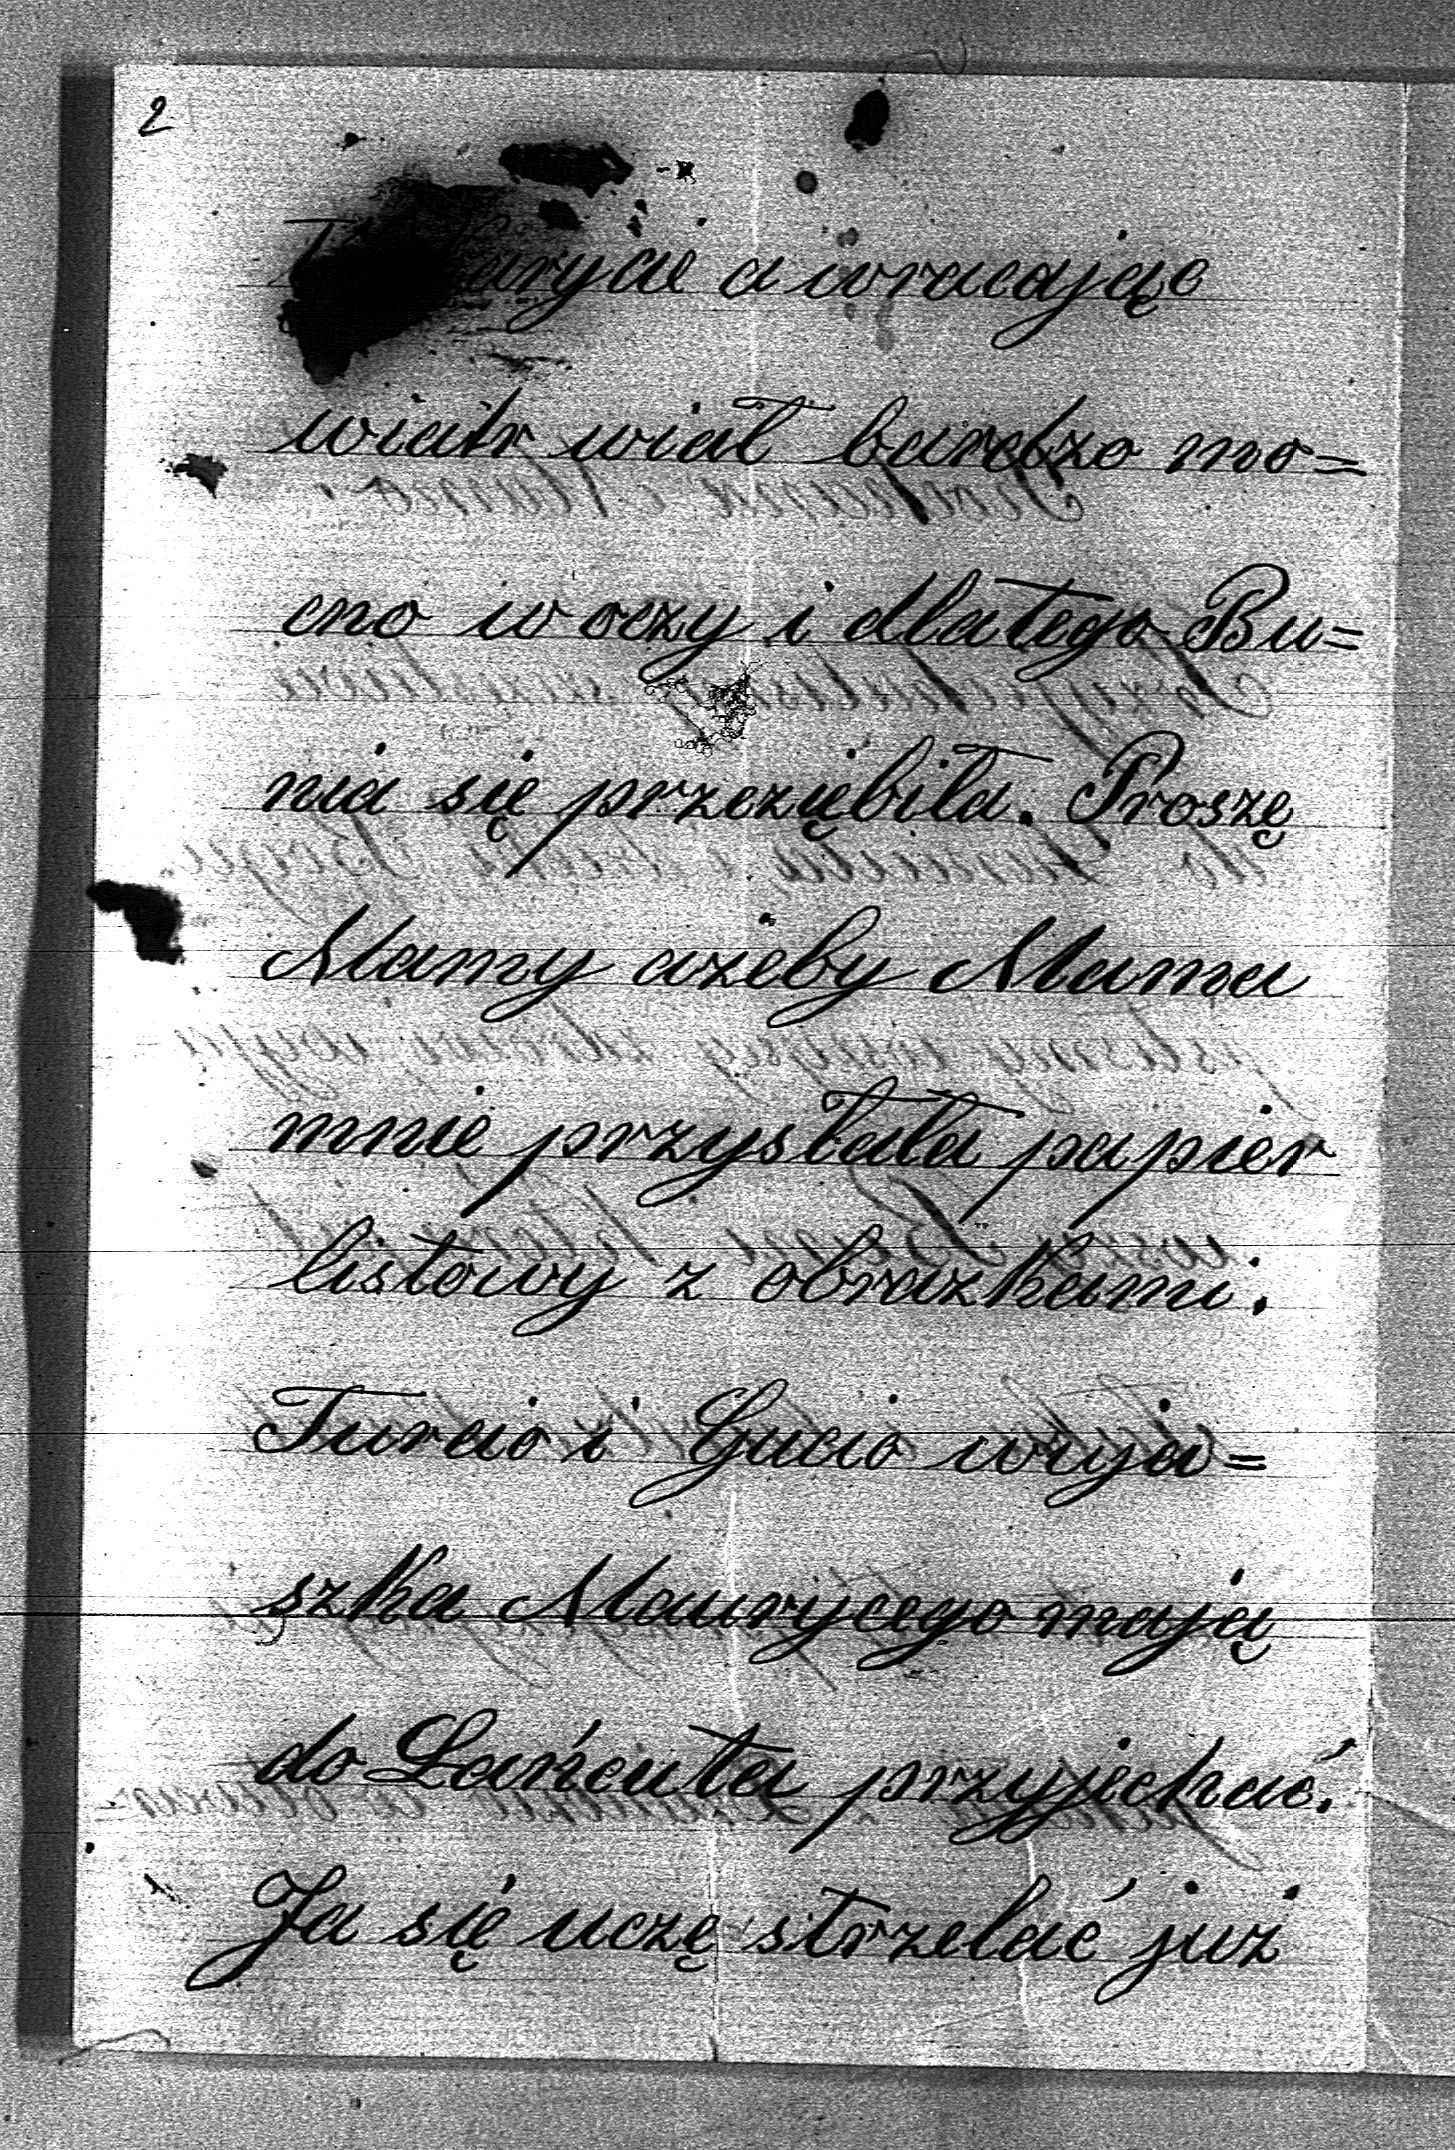 2
a wracając
wiatr wiał bardzo mo=
cno w oczy i dlatego Bu=
nia się przeziębiła. Proszę
Mamy ażeby Mama
mnie przysłała papier
listowy z obrazkami.
Turcio i Gucio wuja=
szka Maurycego mają
do Łańcuta przyjechać.
Ja się uczę strzelać już